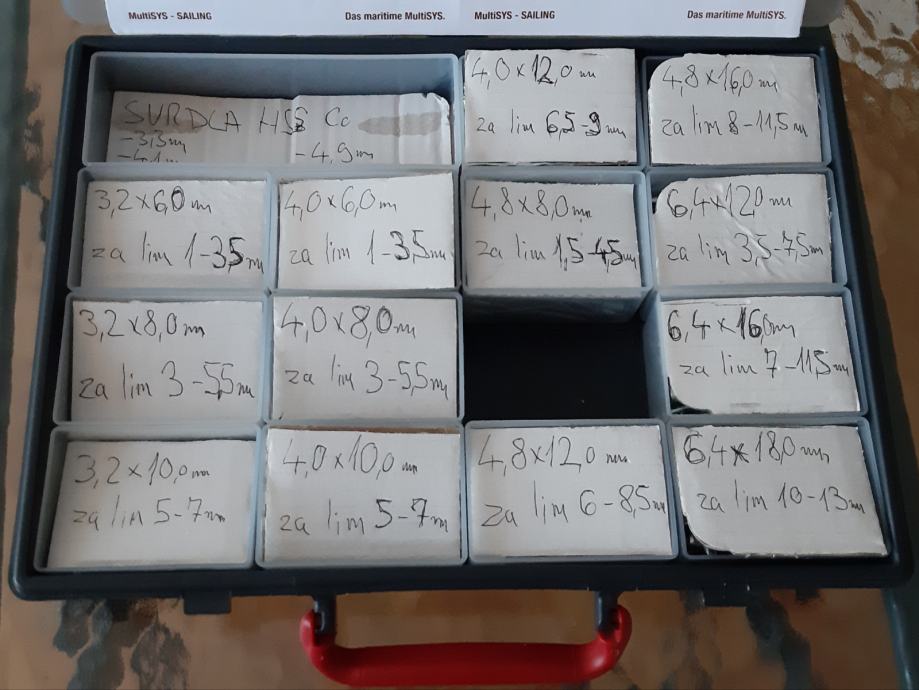 MultiSYS - SAILING
Das maritime MultiSYS.
MultiSYS - SAILING
Das maritime MultiSYS.
SVRDLA HSS Co
-3,3m
-4,1m
-4,9m
4,0x12,0 m
za lim 6,5-9m
4,8x16,0m
za lim 8-11,5m
3,2x6,0 m
za lim 1-3,5m
4,0x6,0m
za lim 1-3,5m
4,8x8,0m
za lim 1,5-4,5m
6,4x12,0m
za lim 3,5-7,5m
3,2x8,0m
za lim 3-5,5m
4,0x8,0m
za lim 3-5,5m
6,4x16,0m
za lim 7-11,5m
3,2x10,0m
za lim 5-7m
4,0x10,0m
za lim 5-7m
4,8x12,0 m
za lim 6-8,5m
6,4x18,0m
za lim 10-13m